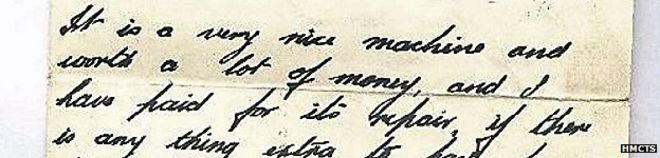 It is a very nice machine and
worth a lot of money, and I
have paid for its repair, if there
is any thing extra to
HMCTS